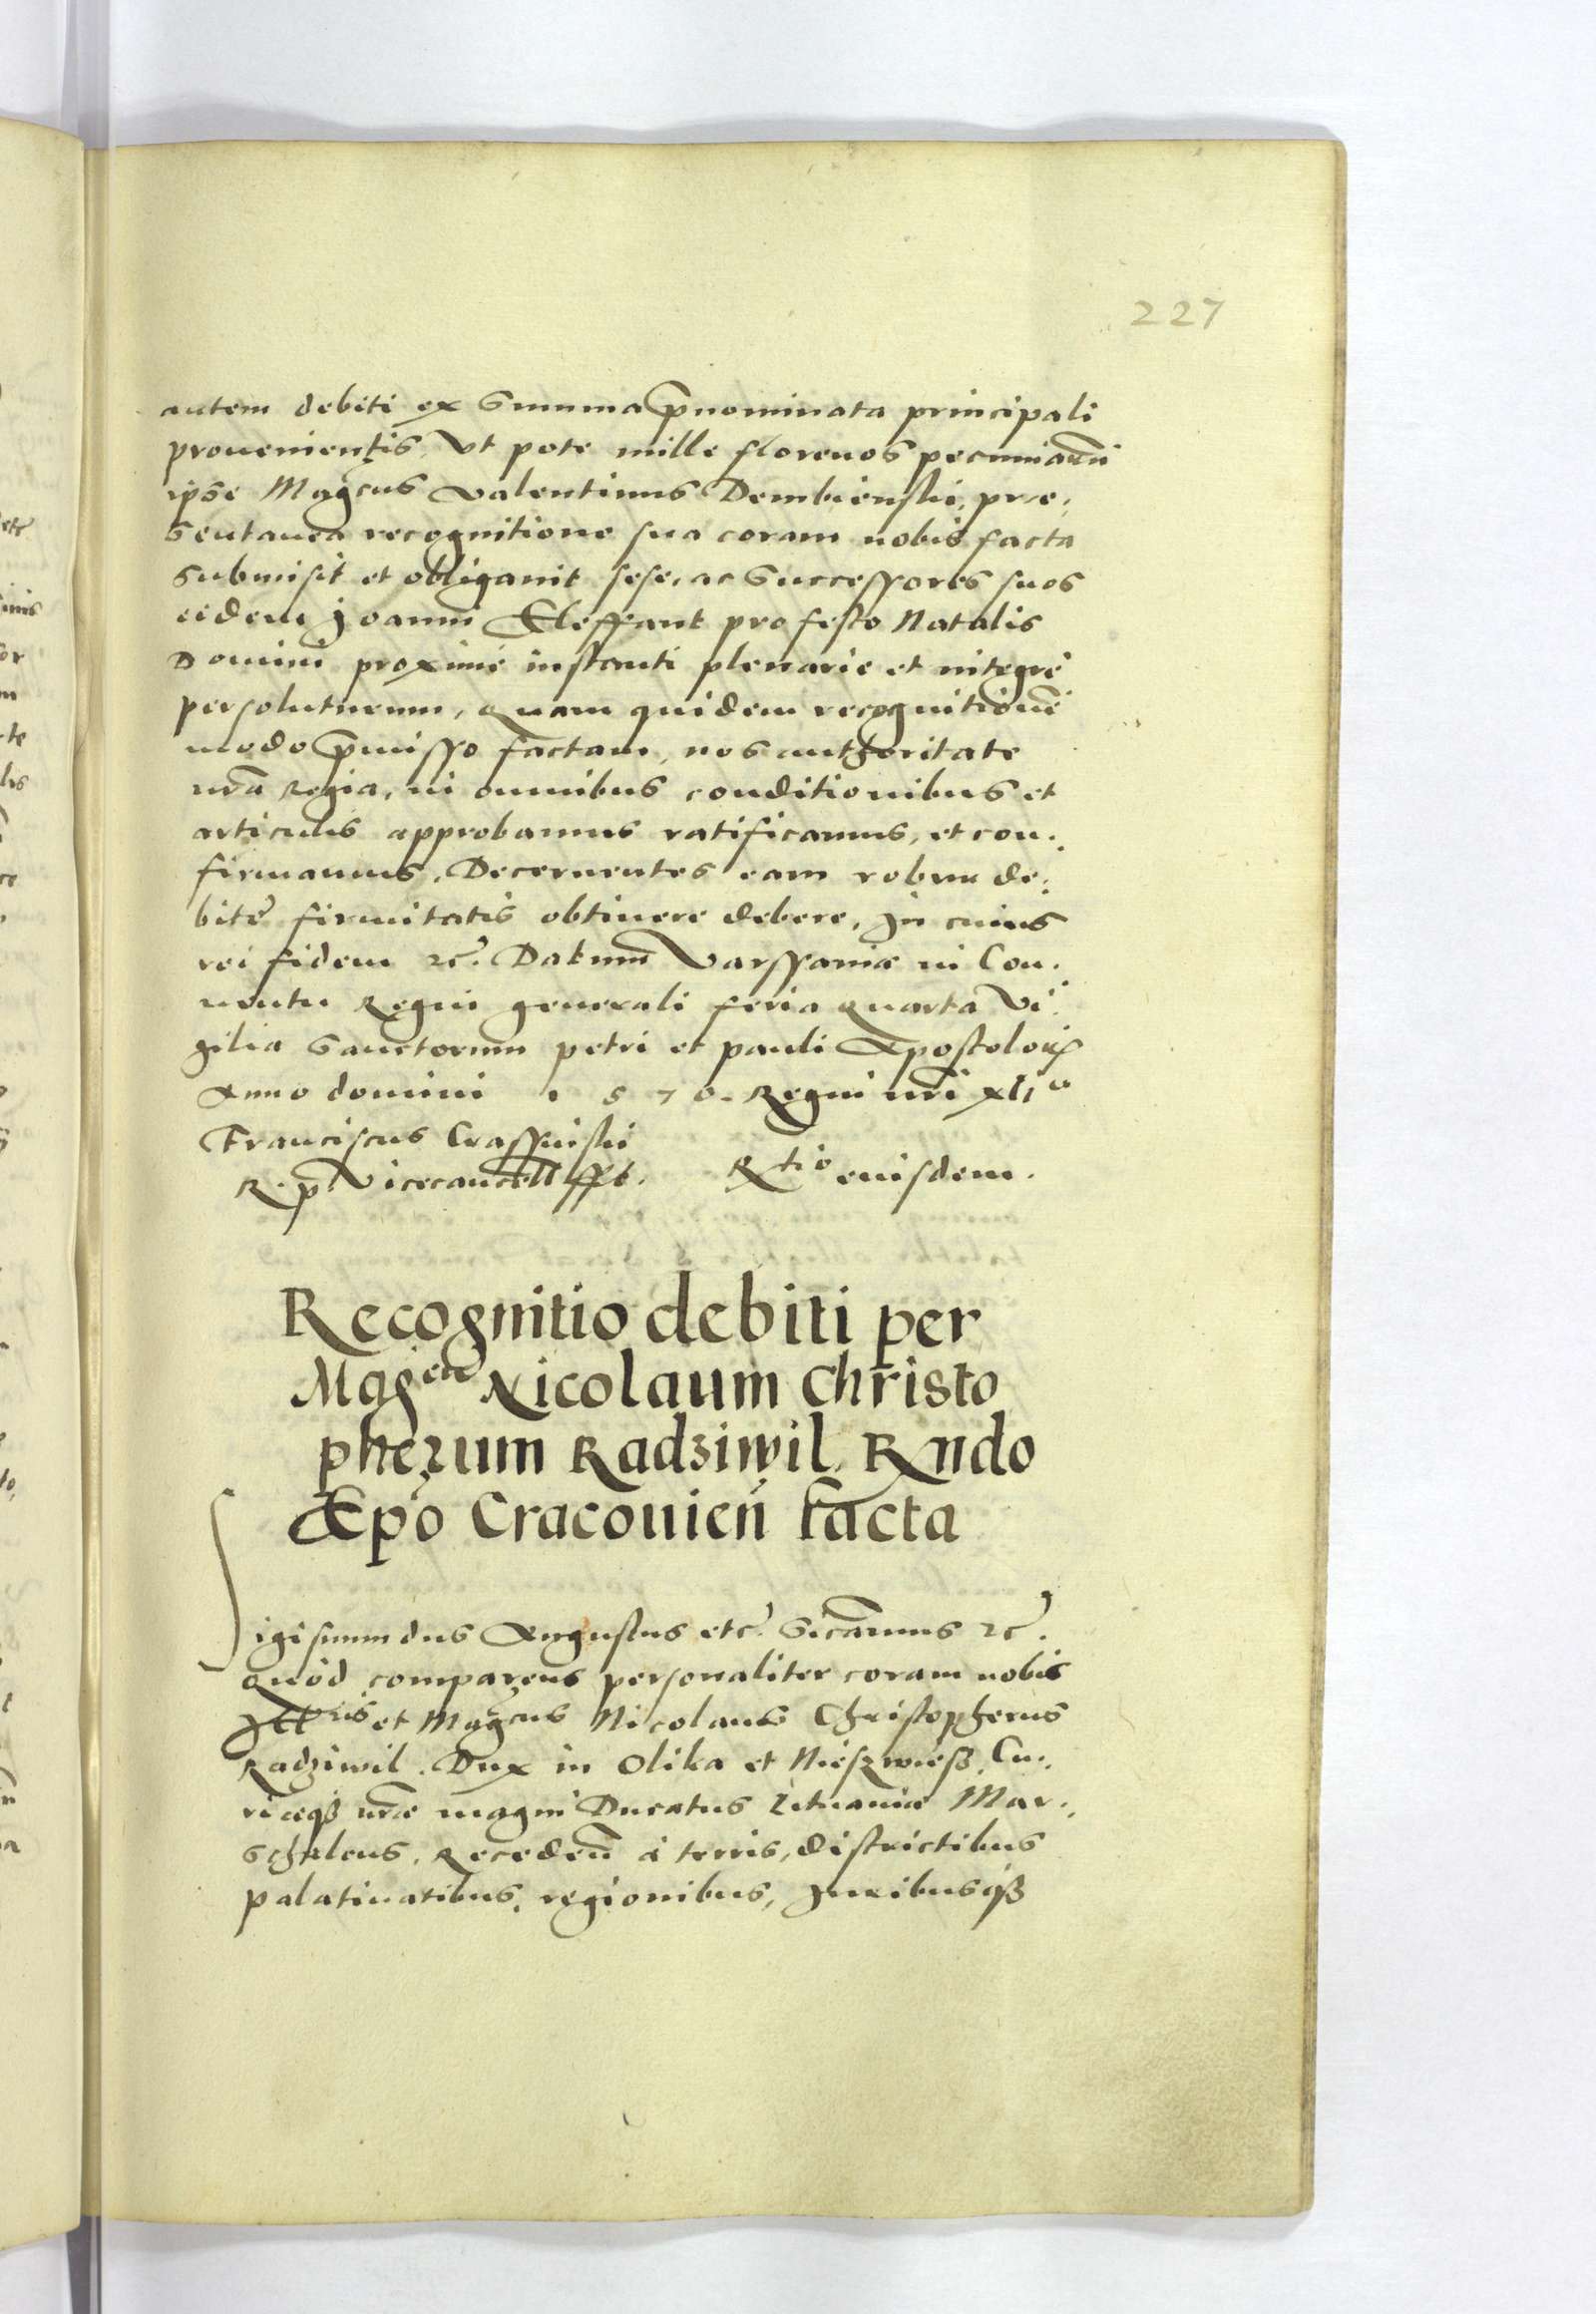 227
autem debiti ex Summa p̄nominata principali
prouenientis, Vt pote mille florenos pecuniarū
ipse Magcus Valentinus Dembienski, præ,
sentanea recognitione sua coram nobis facta
submisit et obligauit sese, ac Successores suos
eidem Joanni Eleffant pro festo Natalis
Domini proximè instanti plenarie et integrè
persoluturum, Quam quidem recognitionē
modo p̄misso factam, nos authoritate
nrā Regia, in omnibus conditionibus et
articulis approbamus ratificamus, et con.
firmamus, Decernentes eam robur de,
bitę firmitatis obtinere debere, In cuius
rei fidem etc̃. Datum Varssauiæ in Con.
uentu Regni generali feria Quarta Vi.
gilia Sanctorum petri et pauli Apostoloꝝ
Anno domini 1570. Regni nr̄i xliº
Franciscus Crassinski
R. p. Vicecancell sst. Rtio eiusdem.
Recognitio debiti per
Magcū Nicolaum Christo
pherum Radziwil, Rndo
Epō Cracouien̄ facta
Sigismundus Augustus etc̃. Sicamus etc̃.
Quòd comparens personaliter coram nobis
Illris et Magcus Nicolaus Christopherus
Radziwil. Dux in Olika et Nieszwiesz, Cu.
riæqȝ nræ magni Ducatus Lituaniæ Mar.,
schalcus, Recedeñ à terris, districtibus
palatinatibus, regionibus, Juribusqȝ